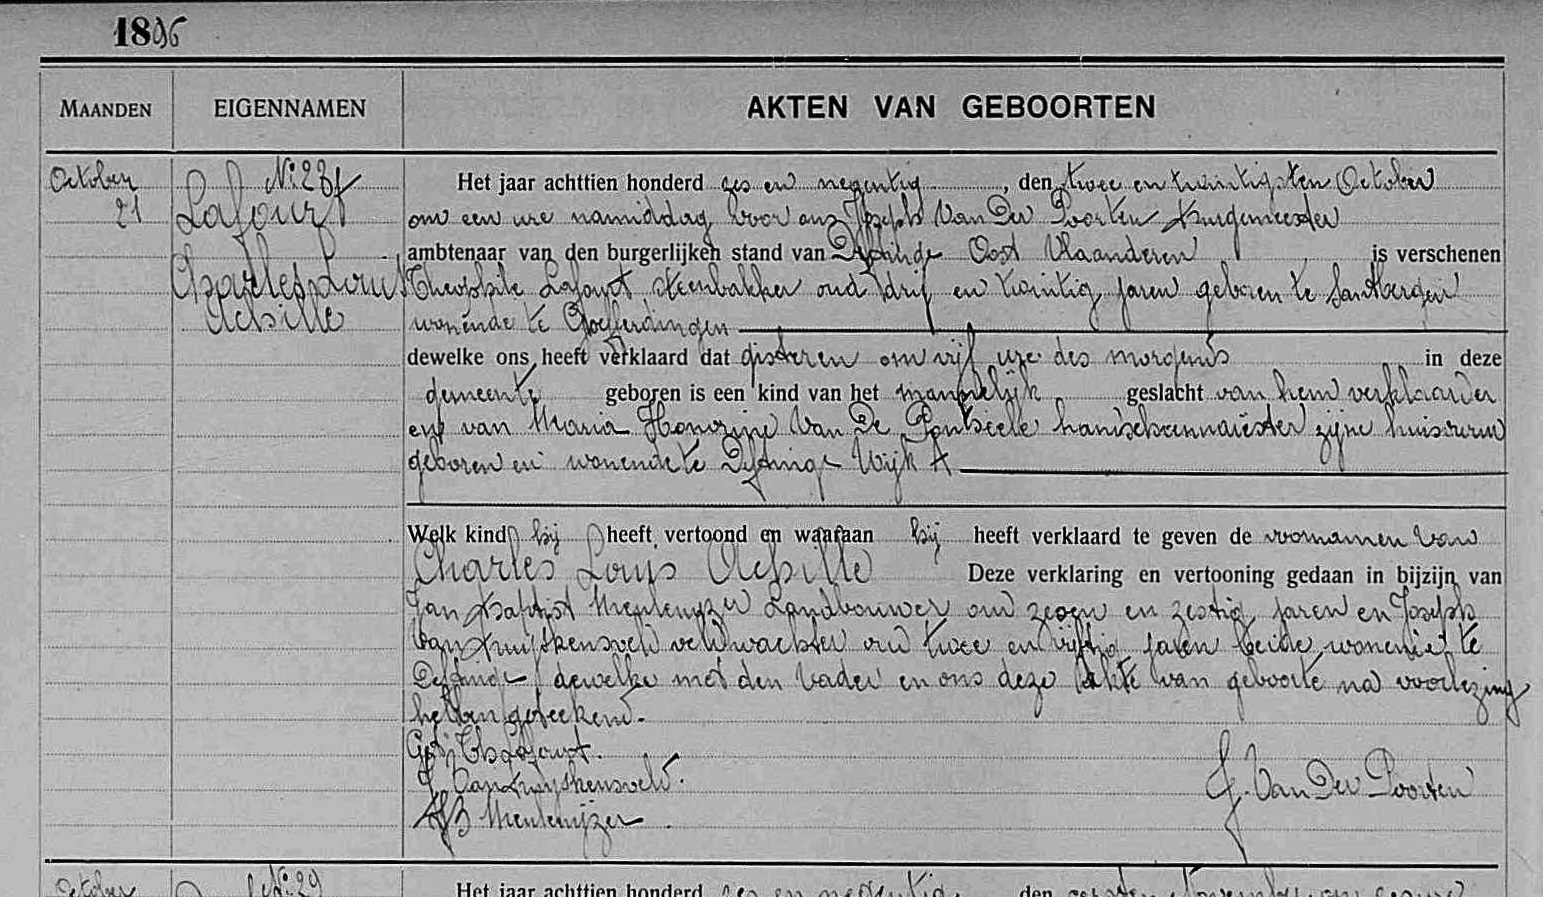 1896
MAANDEN
EIGENNAMEN
AKTEN VAN GEBOORTEN
October
21
Lafourt
Charles Louis
Achille
Het jaar achttien honderd zes en negentig, den twee en twintigsten October
om een ure namiddag voor ons Joseph Van Der Poorten Burgemeester
ambtenaar van den burgerlijken stand van Deftinge Oost Vlaanderen is verschenen
Theophile Lafourt steenbakker oud drij en twintig jaren geboren te Santbergen
wonende te Goefferdingen
dewelke ons heeft verklaard dat gisteren om vijf ure des morgends in deze
gemeente geboren is een kind van het mannelijk geslacht van hem verklaarder
en van Maria Honorine Van De Pontseele handschennaaister zijne huisvrouw
geboren en wonende te Deftinge Wijk A
Welk kind hij heeft vertoond en waaraan hij heeft verklaard te geven de voornamen van
Charles Louis Achille Deze verklaring en vertooning gedaan in bijzijn van
Jan Baptist Meulenyzer Landbouwer oud zeven en zestig jaren en Joseph
Van Kruijskensveld veldwachter oud twee en vijftig jaren beide wonende te
Deftinge dewelke met den vader en ons deze akte van geboorte na voorlezing
hebben geteekend.
Th Lafourt.
J. Van Der Poorten
JB Meulenijzer
October
N. 29
Het jaar achttien honderd zes en negentig den